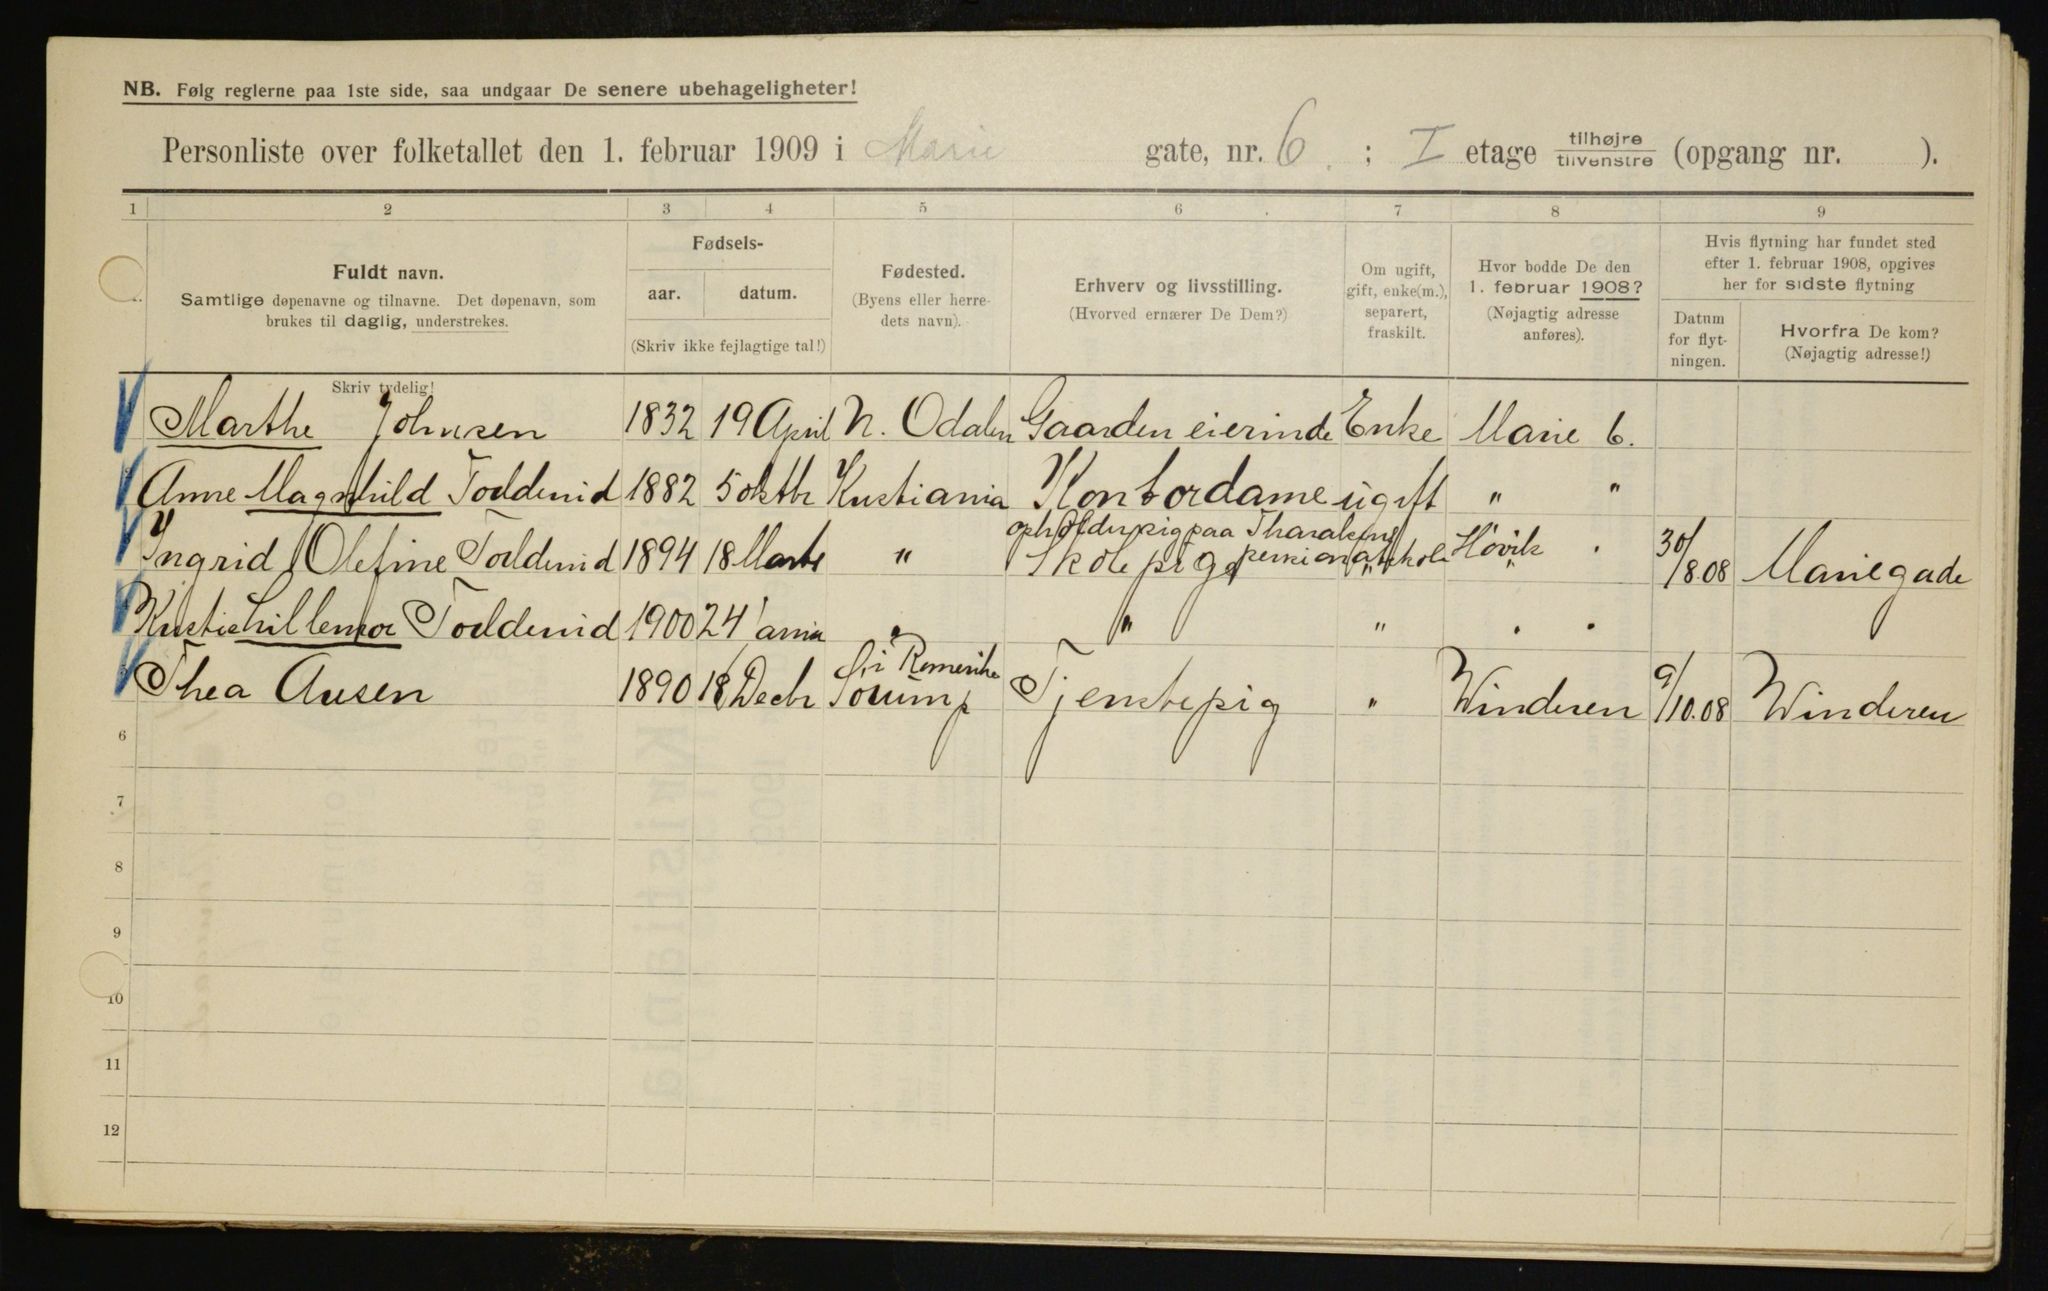 NB. Følg reglerne paa 1ste side, saa undgaar De senere ubehageligheter!
Personliste over folketallet den 1. februar 1909 i Marie gate, nr. 6. ; I etage tilhøjre tilvenstre (opgang nr. ).
1 2 3 4 5 6 7 8 9
Fuldt navn.
Samtlige døpenavne og tilnavne. Det døpenavn, som
brukes til daglig, understrekes.
Skriv tydelig!
Fødsels-
aar. datum.
(Skriv ikke fejlagtige tal!)
Fødested.
(Byens eller herre-
dets navn).
Erhverv og livsstilling.
(Hvorved ernærer De Dem?)
Om ugift,
gift, enke(m.),
separert,
fraskilt.
Hvor bodde De den
1. februar 1908?
(Nøjagtig adresse
anføres).
Hvis flytning har fundet sted
efter 1. februar 1908, opgives
her for sidste flytning
Datum
for flyt-
ningen.
Hvorfra De kom?
(Nøjagtig adresse!)
Marthe Johnsen 1832 19 April N. Odalen Gaardeneierinde Enke Marie 6.
Anne Magnhild Toddenid 1882 5 oktbr Kristiania Kontordame ugift " "
Ingrid Olefine Toddenid 1894 18 Marts " Skolepige " Høvik " 30/8.08 Mariegade
Lillemor Toddenid 1900 24 " " "
Thea Ausen 1890 18 Decbr Sørump i Romerike Tjenstepig " Winderen 9/10.08 Winderen
6
7
8
9
10
11
12